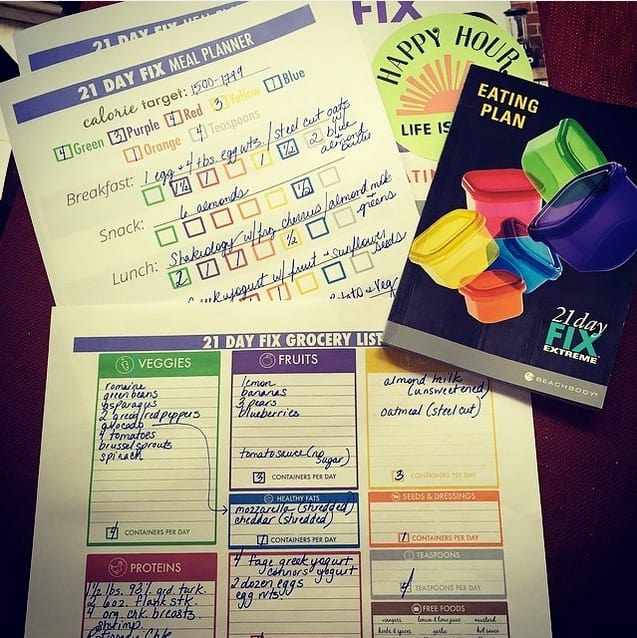 21 DAY FIX MEAL PLANNER
calorie target: 1500-1799
4 Green 3 Purple 4 Red 3 Yellow 1 Blue
1 Orange 4 Teaspoons
Breakfast: 1 egg + 4 tbs. egg wts / steel cut oats
1½ 1 1 ½ 2 blue
almond
Snack: 6 almonds
½
Lunch: Shakeology w/ frz cherries / almond milk
greens
2 1 1 ½
Greek yogurt w/ fruit + sunflower
seeds
potato + veg
FIX
HAPPY HOUR
LIFE IS
EATING
PLAN
21 day
FIX
EXTREME
BEACHBODY
21 DAY FIX GROCERY LIST
VEGGIES
romaine
green beans
asparagus
2 green/red peppers
avocado
4 tomatoes
brussel sprouts
spinach
4 CONTAINERS PER DAY
FRUITS
lemon
bananas
3 pears
blueberries
tomato sauce (no
sugar)
3 CONTAINERS PER DAY
almond milk
(unsweetened)
oatmeal (steel cut)
3 CONTAINERS PER DAY
HEALTHY FATS
mozzarella (shredded)
cheddar (shredded)
1 CONTAINERS PER DAY
SEEDS & DRESSINGS
1 CONTAINERS PER DAY
PROTEINS
1½ lbs. 93% grd. turk.
2 6oz. flank stk.
4 org. chk. breasts
shrimp
4 fage greek yogurt
connors yogurt
2 dozen eggs
egg wts
TEASPOONS
4 TEASPOONS PER DAY
FREE FOODS
vinegars lemon & lime juice mustard
herbs & spices garlic hot sauce